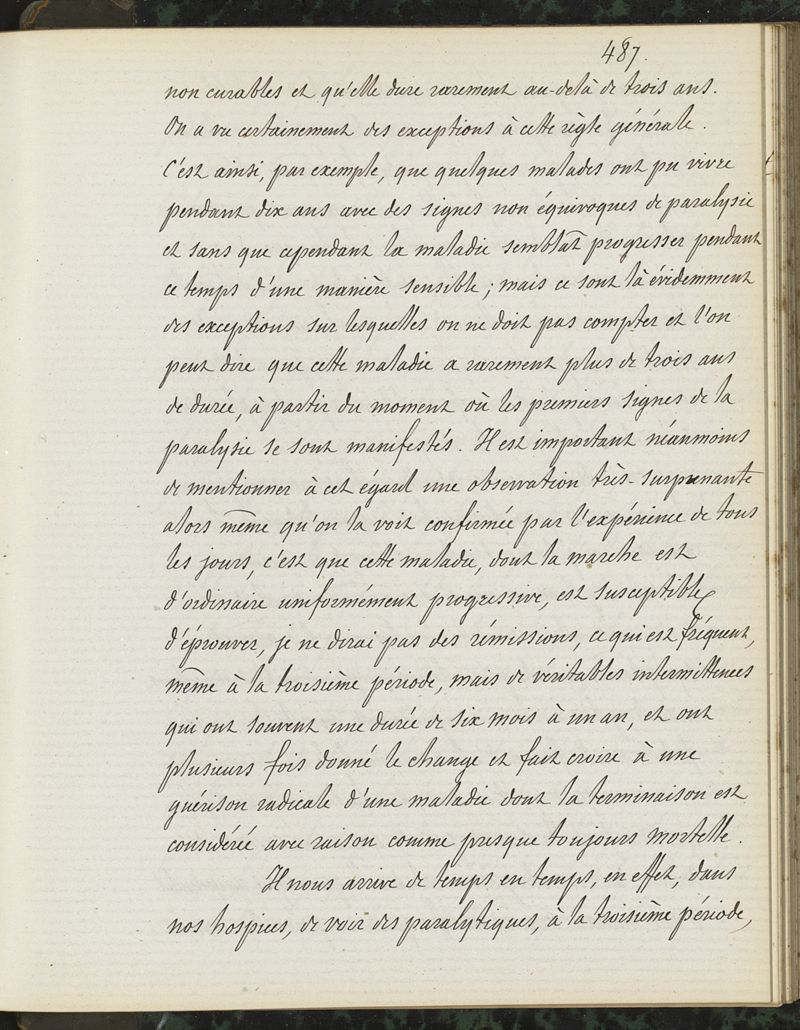 487.
non curables et qu'elle dure rarement au-delà de trois ans.
On a vu certainement des exceptions à cette règle générale.
C'est ainsi, par exemple, que quelques malades ont pu vivre
pendant dix ans avec des signes non équivoques de paralysie
et sans que cependant la maladie semblât progresser pendant
ce temps d'une manière sensible ; mais ce sont là évidemment
des exceptions sur lesquelles on ne doit pas compter et l'on
peut dire que cette maladie a rarement plus de trois ans
de durée, à partir du moment où les premiers signes de la
paralysie se sont manifestés. Il est important néanmoins
de mentionner à cet égard une observation très-surprenante
alors même qu'on la voit confirmée par l'expérience de tous
les jours, c'est que cette maladie, dont la marche est
d'ordinaire uniformément progressive, est susceptible
d'éprouver, je ne dirai pas des rémissions, ce qui est fréquent,
même à la troisième période, mais de véritables intermittences
qui ont souvent une durée de six mois à un an, et ont
plusieurs fois donné le change et fait croire à une
guérison radicale d'une maladie dont la terminaison est
considérée avec raison comme presque toujours mortelle.
Il nous arrive de temps en temps, en effet, dans
nos hospices, de voir des paralytiques, à la troisième période,